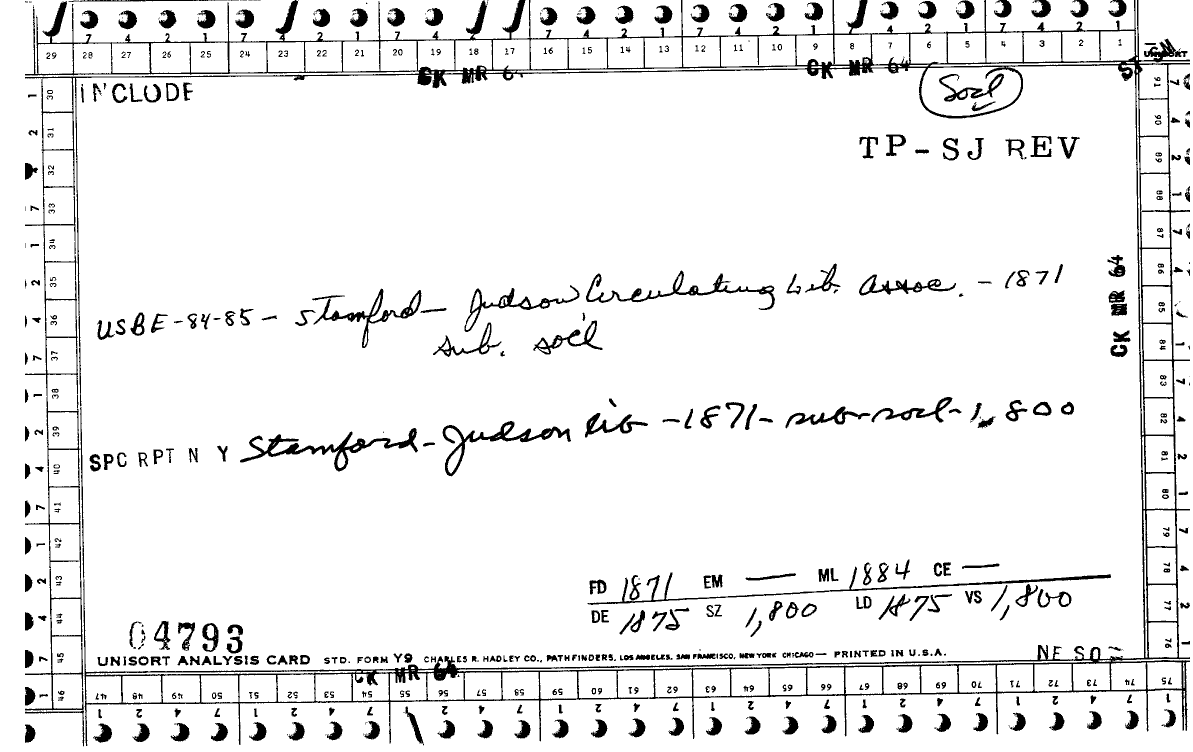 7 4 2 1 7 4 2 1 7 4 2 1 7 4 2 1 7 4 2 1
29 28 27 26 25 24 23 22 21 20 19 18 17 16 15 14 13 12 11 10 9 8 7 6 5 4 3 2 1
CK MR 6
CK MR 64
INCLUDE
Soc'l
TP-SJ REV
USBE-84-85- Stamford- Judson Circulating Lib. assoc. - 1871
sub. soc'l
SPC RPT N Y Stamford- Judson Lib -1871- sub-socl-1,800
CK MR 64
FD 1871 EM — ML 1884 CE —
DE 1875 SZ 1,800 LD 1875 VS 1,800
04793
UNISORT ANALYSIS CARD STD. FORM Y9 CHARLES R. HADLEY CO., PATHFINDERS, LOS ANGELES, SAN FRANCISCO, NEW YORK CHICAGO— PRINTED IN U.S.A.
CK MR 64
30 31 32 33 34 35 36 37 38 39 40 41 42 43 44 45 46
47 48 49 50 51 52 53 54 55 56 57 58 59 60 61 62 63 64 65 66 67 68 69 70 71 72 73 74 75
76 77 78 79 80 81 82 83 84 85 86 87 88 89 90 91